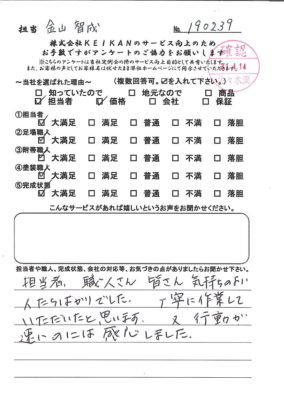 担当 金山 智成 № 190239
株式会社KEIKANのサービス向上のため
お手数ですがアンケートのご協力をお願いします。
確認
～当社を選ばれた理由～ (複数回答可。☑を入れて下さい。)
□ 知っていたので □ 地元なので □ 商品
☑ 担当者 ☑ 価格 □ 会社 □ 保証
①担当者
☑ 大満足 □ 満足 □ 普通 □ 不満 □ 落胆
②足場職人
☑ 大満足 □ 満足 □ 普通 □ 不満 □ 落胆
③附帯職人
☑ 大満足 □ 満足 □ 普通 □ 不満 □ 落胆
④塗装職人
☑ 大満足 □ 満足 □ 普通 □ 不満 □ 落胆
⑤完成状態
☑ 大満足 □ 満足 □ 普通 □ 不満 □ 落胆
こんなサービスがあれば嬉しいというお声をお聞かせください。
担当者や職人、完成状態、会社の対応等、お気づきの点がありましたらお聞かせ下さい。
担当者、職人さん 皆さん 気持ちのよい
人たちばかりでした。 丁寧に作業して
いただいたと思います。 又 行動が
速いのには感心しました。